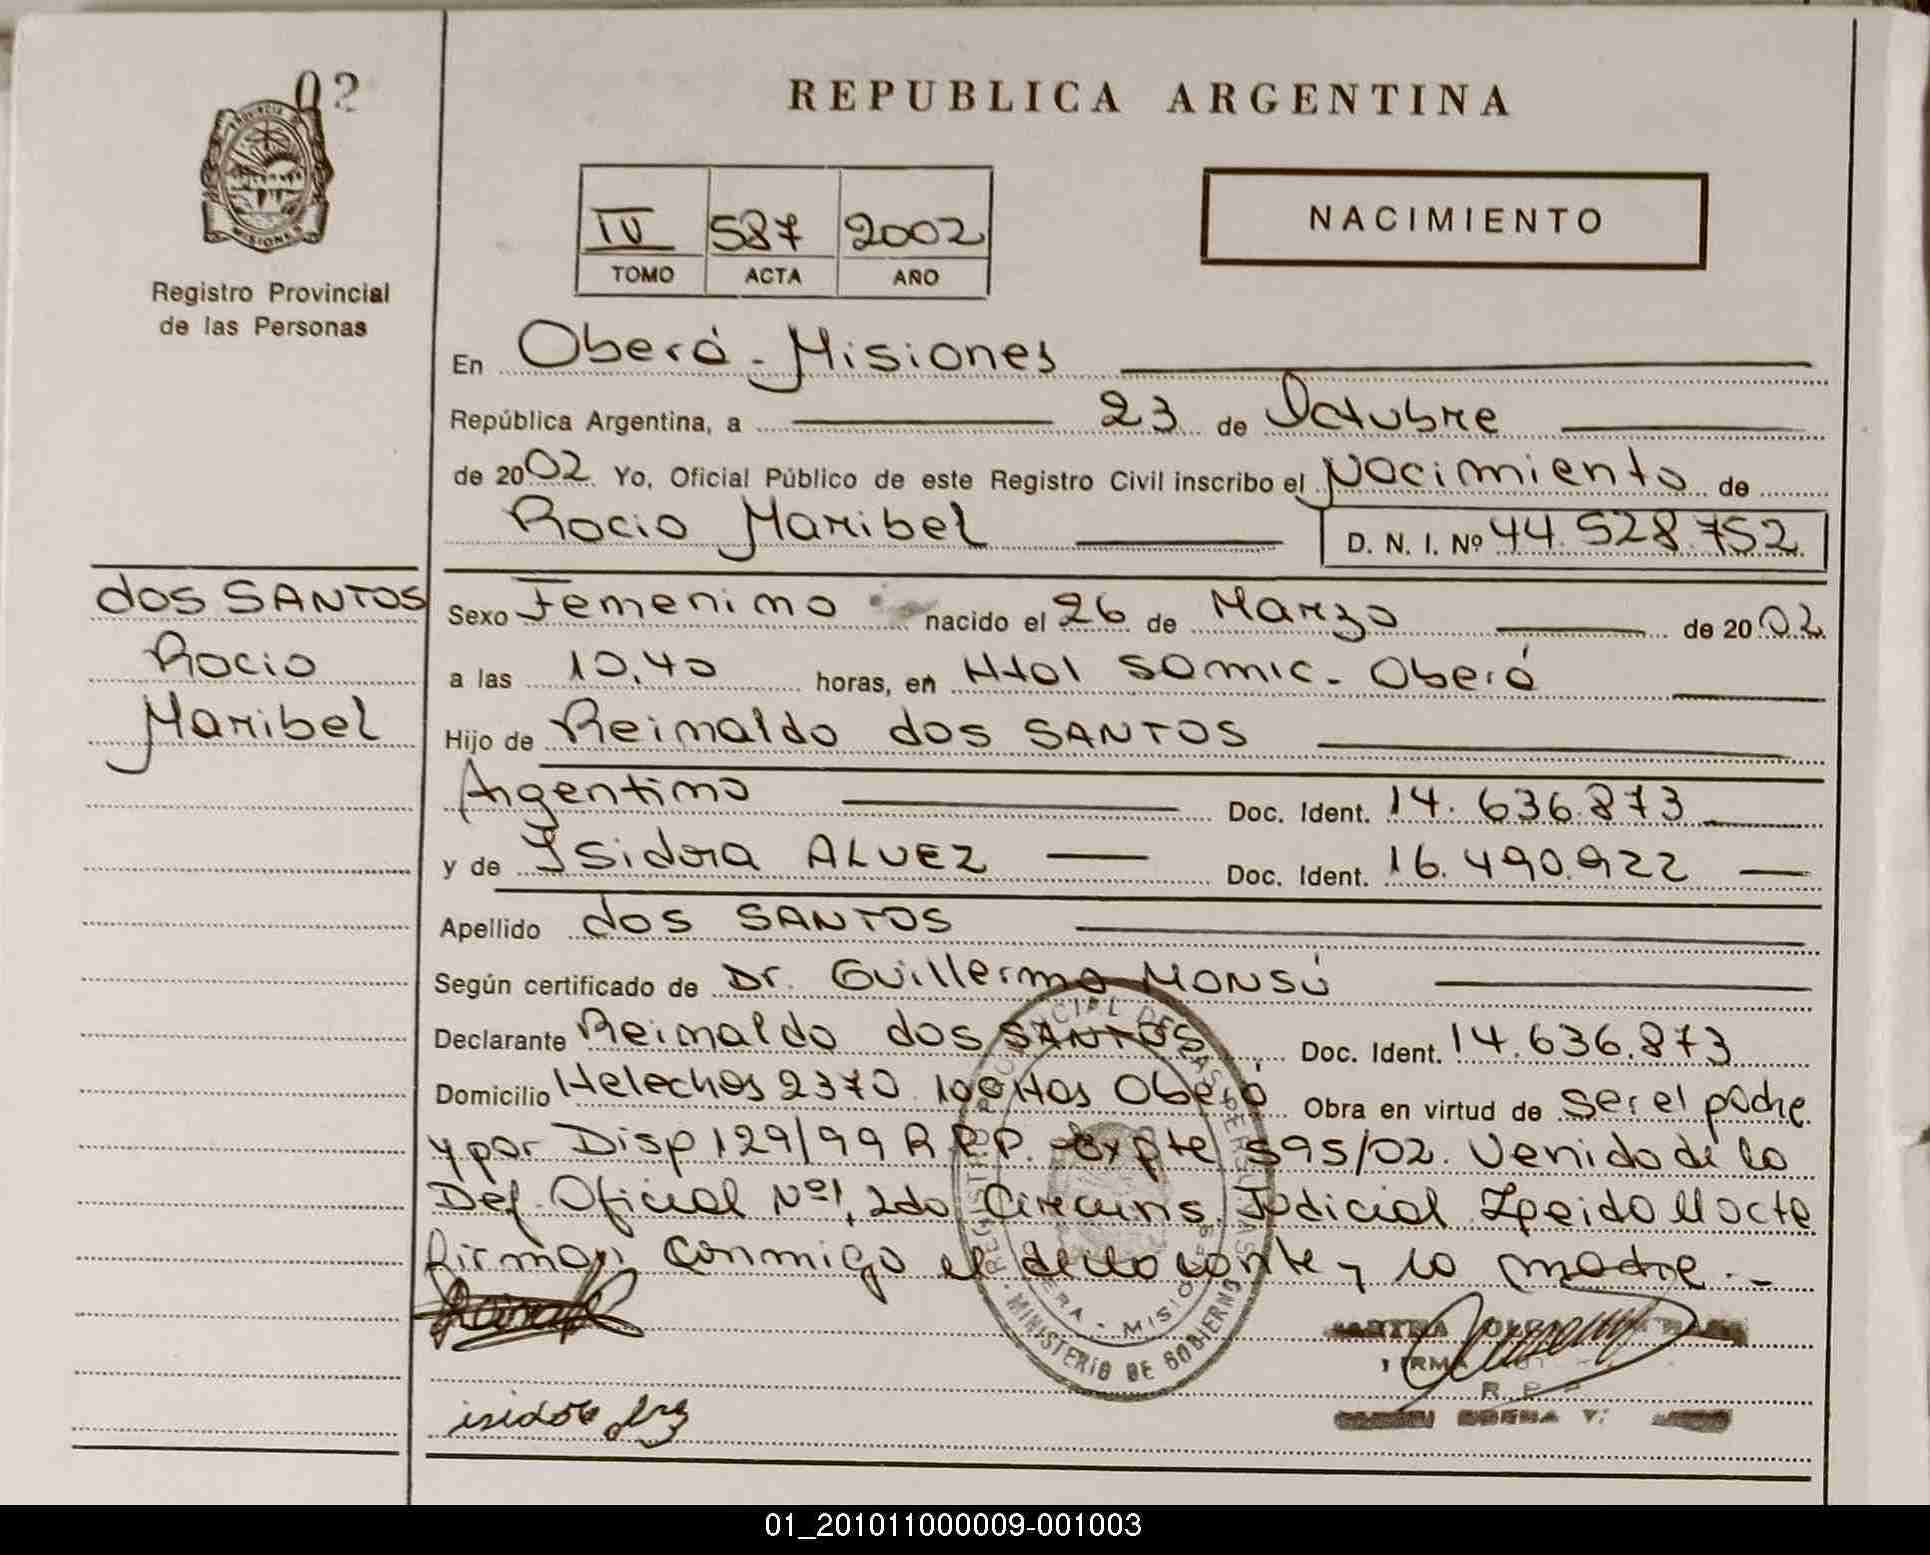 02
PROVINCIA
MISIONES
Registro Provincial
de las Personas
REPUBLICA ARGENTINA
IV 587 2002
TOMO ACTA AÑO
NACIMIENTO
En Oberá - Misiones
República Argentina, a 23 de Octubre
de 2002. Yo, Oficial Público de este Registro Civil inscribo el Nacimiento de
Rocio Maribel D. N. I. Nº 44.528.752.
dos SANTOS
Rocio
Maribel
Sexo Femenino nacido el 26 de Marzo de 2002.
a las 10,40 horas, en Htal SAMIC - Oberá
Hijo de Reinaldo dos SANTOS
Argentino Doc. Ident. 14.636.873
y de Isidora ALVEZ Doc. Ident. 16.490.922
Apellido dos SANTOS
Según certificado de Dr. Guillermo MONSÚ
Declarante Reinaldo dos SANTOS Doc. Ident. 14.636.873
Domicilio Helechos 2370 100 Has Oberá Obra en virtud de ser el padre
y por Disp 129/99 R.P.P. expte 595/02. Venido de la
Def. Oficial Nº1, 2do Circuns. Judicial. Leido el acta
firman conmigo el declarante y la madre.-
MINISTERIO DE GOBIERNO
isidora